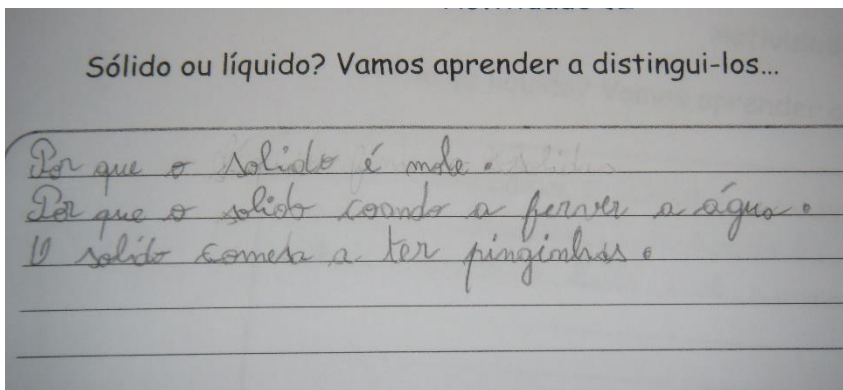 Sólido ou líquido? Vamos aprender a distingui-los...
Por que o solido é mole.
Por que o solido coando a ferver a água.
O solido comesa a ter pinginhas.